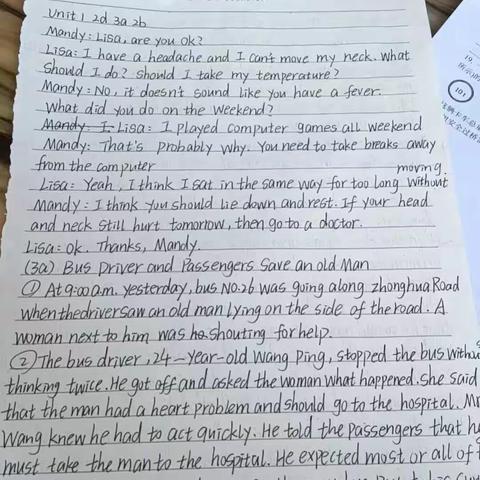 Unit 1 2d 3a 2b
Mandy: Lisa, are you ok?
Lisa: I have a headache and I can't move my neck. What
Should I do? Should I take my temperature?
Mandy: No, it doesn't sound like you have a fever.
What did you do on the weekend?
Mandy: I Lisa: I played computer games all weekend
Mandy: That's probably why. You need to take breaks away
from the computer
moving.
Lisa: Yeah, I think I sat in the same way for too long without
Mandy: I think you should lie down and rest. If your head
and neck still hurt tomorrow, then go to a doctor.
Lisa: ok. Thanks, Mandy.
(3a) Bus Driver and Passengers Save an old Man
① At 9:00 a.m. yesterday, bus NO.26 was going along zhonghua Road
when the driver saw an old man lying on the side of the road. A
woman next to him was ho shouting for help.
② The bus driver, 24-year-old Wang Ping, stopped the bus withou
thinking twice. He got off and asked the woman what happened. She said
that the man had a heart problem and should go to the hospital. Mr
Wang knew he had to act quickly. He told the passengers that he
must take the man to the hospital. He expected most or all of
19.
101